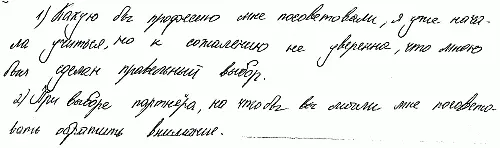 1) Какую бы профессию мне посоветовали, я уже нача-
ла учиться, но к сожалению не уверенна, что мною
был сделан правильный выбор.
2) При выборе партнёра, на что бы вы могли мне посовето-
вать обратить внимание.